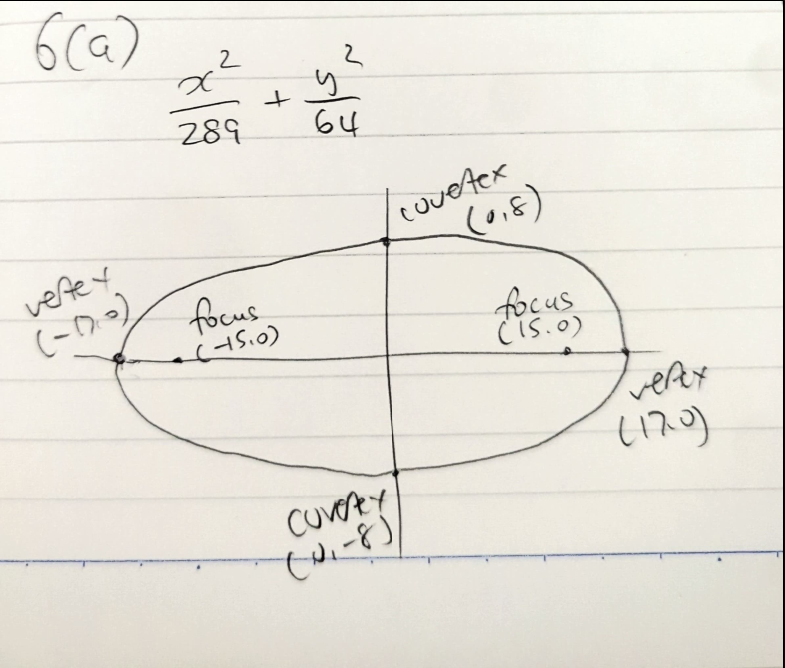 6(a)
x²/289 + y²/64
covertex
(0,8)
vertex
(-17.0)
focus
(-15.0)
focus
(15.0)
vertex
(17.0)
covertex
(0,-8)